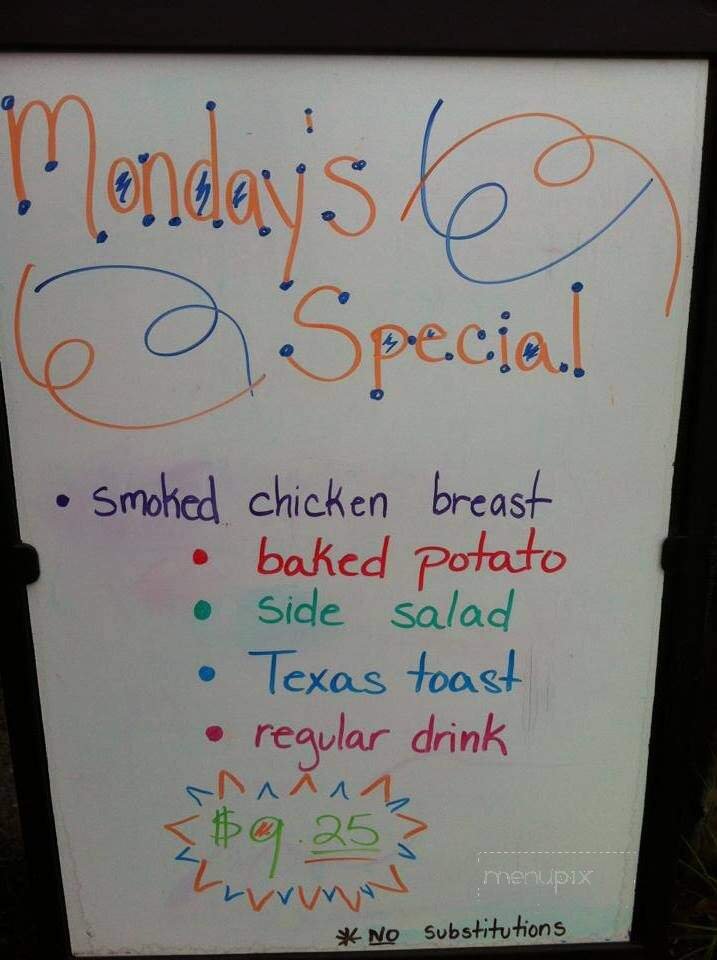 Monday's
Special
• smoked chicken breast
• baked potato
• side salad
• Texas toast
• regular drink
$9.25
menupix
* NO substitutions